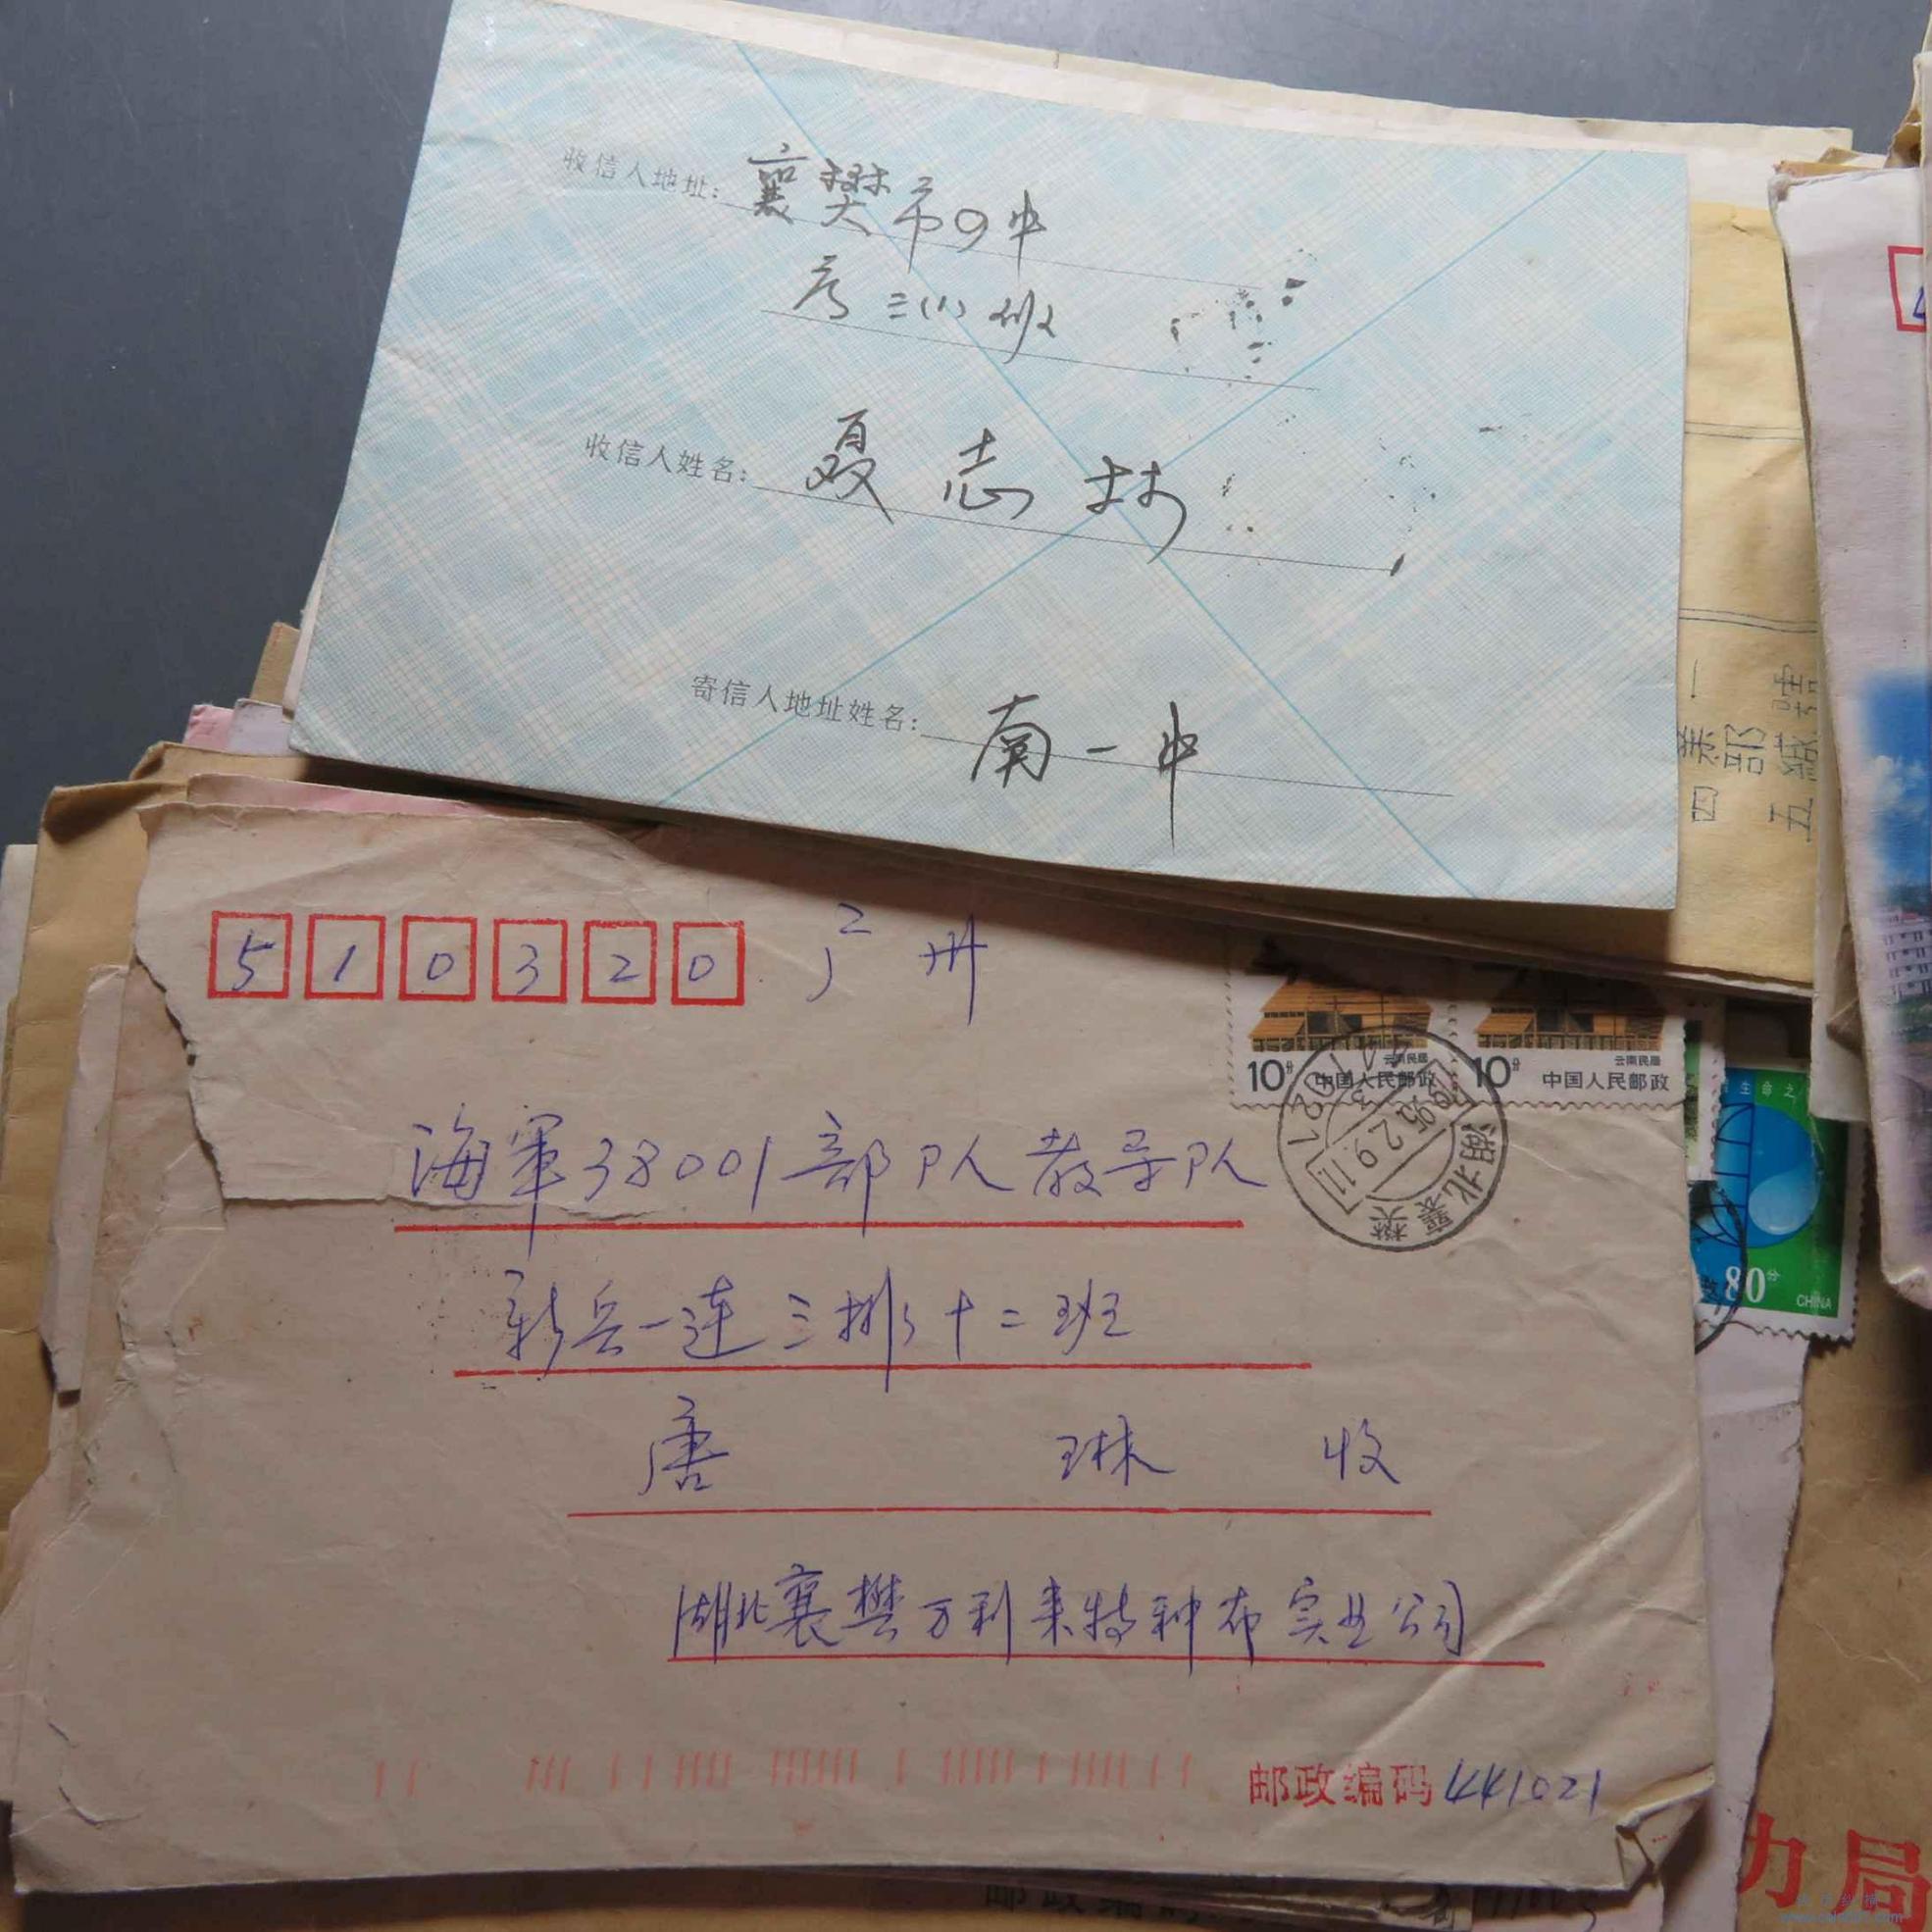 收信人地址：襄樊市9中
高三(1)班
收信人姓名：聂志林
寄信人地址姓名：南一中
四
泰部
五
510320 广州
10分 云南民居 中国人民邮政
10分 云南民居 中国人民邮政
441021
3
1995.2.9.11
湖北襄樊
生命之
80分
CHINA
海軍38001部队教导队
新兵一连三排十二班
唐 琳 收
湖北襄樊万利来特种布实业公司
邮政编码 441021
力局
邮政编码